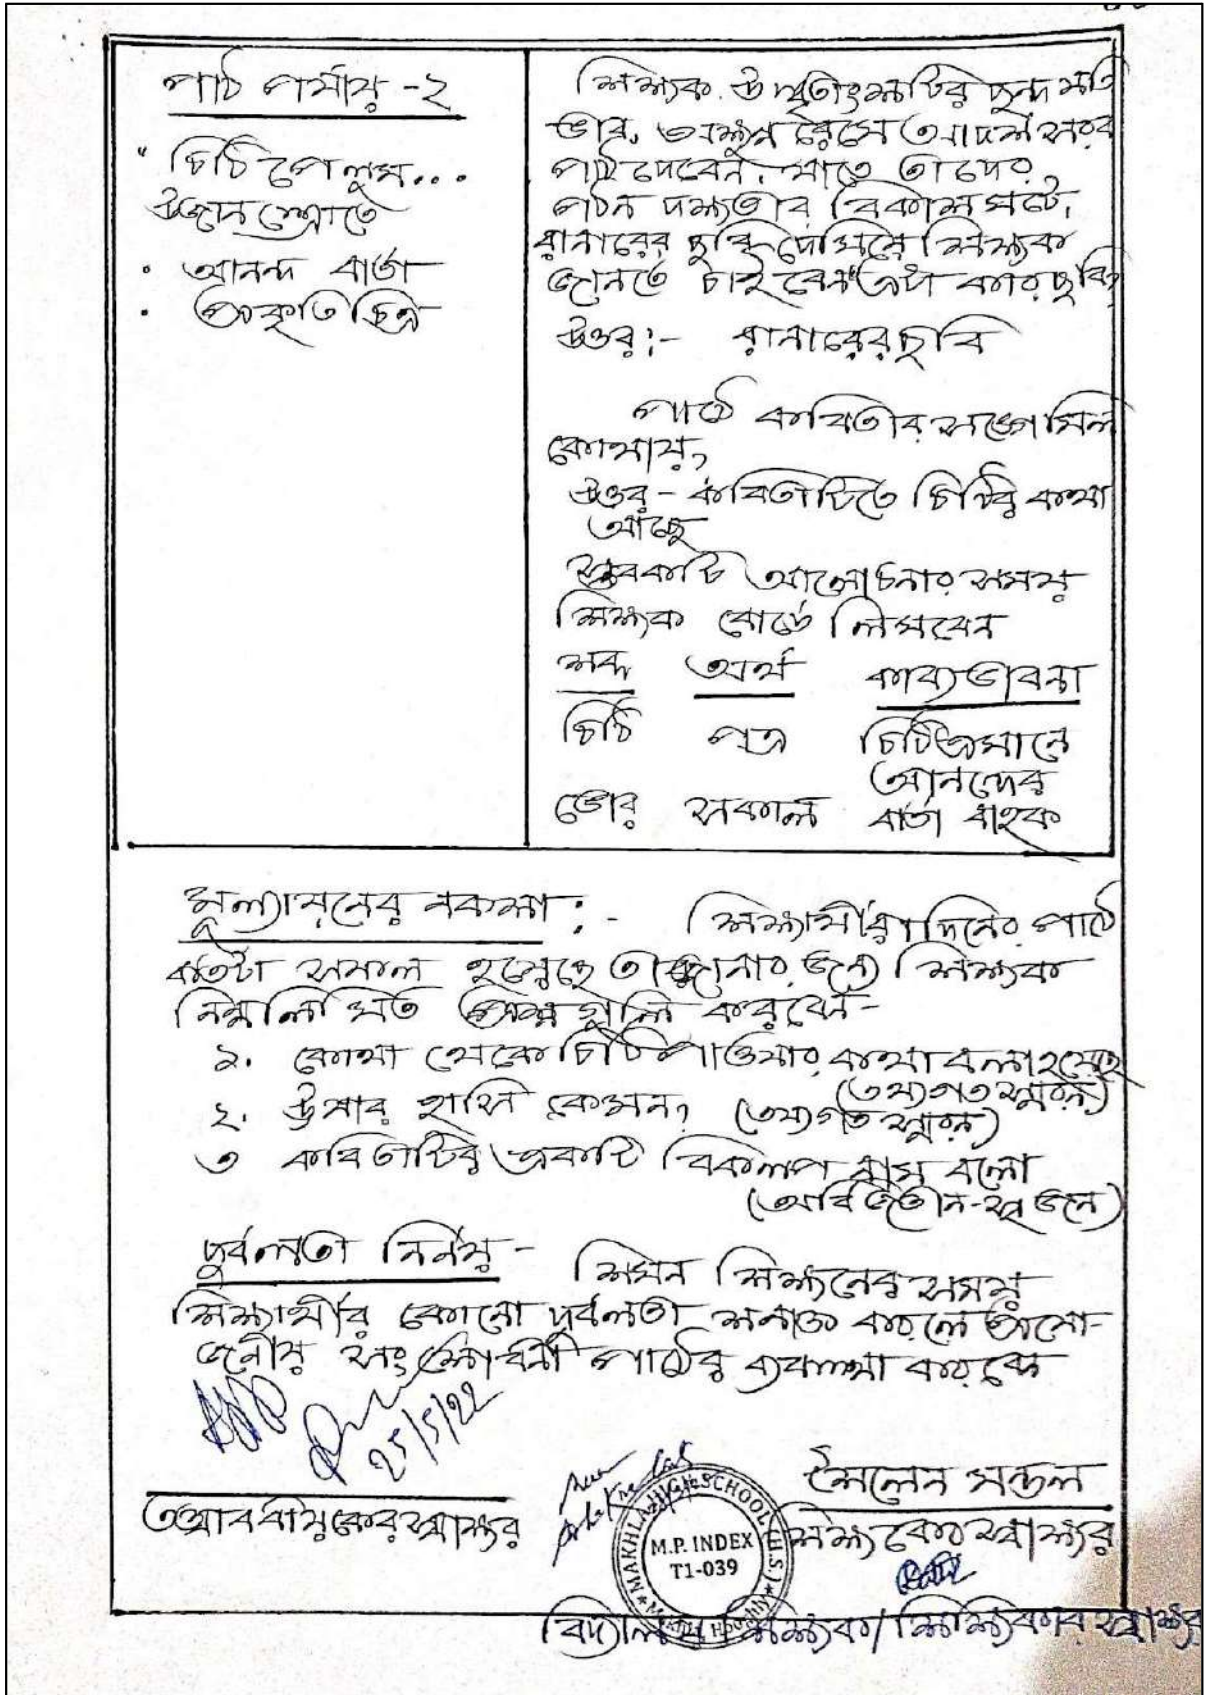 পাঠ পর্যায় - ২
"চিঠি পেলুম...
উজান স্রোতে
• আনন্দ বার্তা
• প্রকৃতি চিত্র
শিক্ষক উদ্ধৃতাংশটির ছন্দ যতি
ভাব, অক্ষুন্ন রেখে আদর্শ সরব
পাঠ দেবেন, যাতে তাদের
পঠন দক্ষতার বিকাশ ঘটে,
রানারের ছবি দেখিয়ে শিক্ষক
জানতে চাইবেন এটা কার ছবি?
উত্তর:- রানারের ছবি
পাঠ্য কবিতার সঙ্গে মিল
কোথায়?
উত্তর - কবিতাটিতে চিঠির কথা
আছে
স্তবকটি আলোচনার সময়
শিক্ষক বোর্ডে লিখবেন
শব্দ অর্থ কাব্যভাবনা
চিঠি পত্র চিঠি এখানে
আনন্দের
ভোর সকাল বার্তা বাহক
মূল্যায়নের নকশা:- শিক্ষার্থীরা দিনের পাঠে
কতটা সফল হয়েছে তা জানার জন্য শিক্ষক
নিম্নলিখিত প্রশ্ন গুলি করবেন-
১. কোথা থেকে চিঠি পাওয়ার কথা বলা হয়েছে
(তথ্যগত স্মরণ)
২. ঊষার হাসি কেমন? (তথ্যগত স্মরণ)
৩ কবিতাটির একটি বিকল্প নাম বলো
(অবিজিতান-সৃজন)
দুর্বলতা নির্ণয় - শিখন শিক্ষনের সময়
শিক্ষার্থীর কোনো দুর্বলতা শনাক্ত করলে প্রয়ো-
জনীয় সংশোধনী পাঠের ব্যবস্থা করবে
25/5/22
তত্ত্বাবধায়কের স্বাক্ষর
শৈলেন মন্ডল
শিক্ষকের স্বাক্ষর
MAKHLA HIGH SCHOOL (H.S.)
M.P. INDEX
T1-039
বিদ্যালয় শিক্ষক/শিক্ষিকার স্বাক্ষর